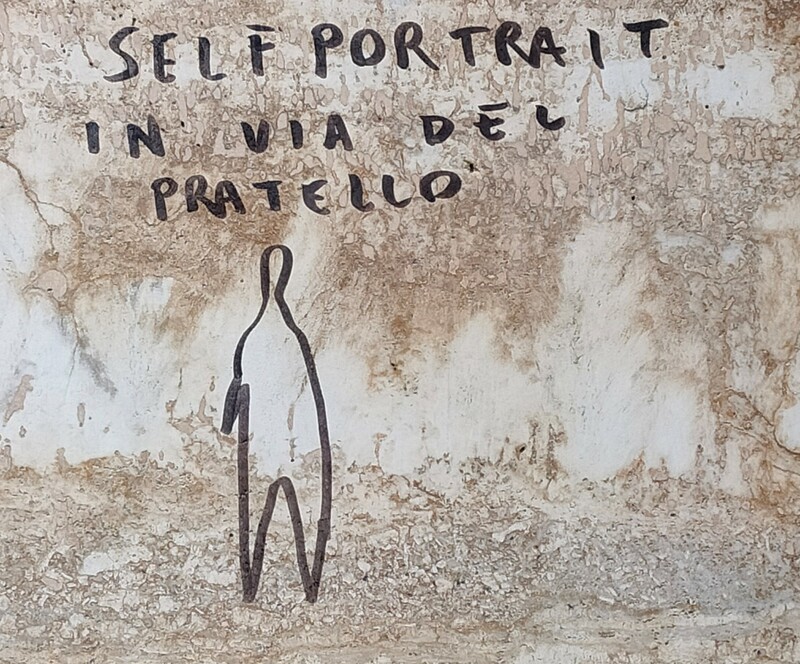 SELF PORTRAIT
IN VIA DEL
PRATELLO